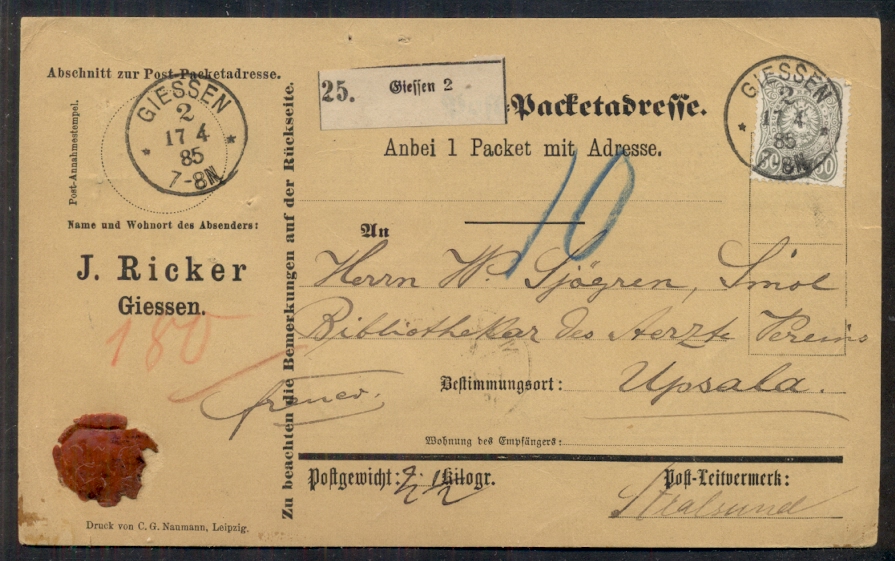 Abschnitt zur Post-Packetadresse.
GIESSEN
2
17 4
85
7-8N.
Post-Annahmestempel.
Name und Wohnort des Absenders:
J. Ricker
Giessen.
180
franco.
Druck von C. G. Naumann, Leipzig.
Zu beachten die Bemerkungen auf der Rückseite.
25. Giessen 2
-Packetadresse.
Anbei 1 Packet mit Adresse.
GIESSEN
2
17 4
85
8N
50 50
10
An
Herrn W. Sjögren,
Bibliothekar des Aerzte Vereins
Bestimmungsort: Upsala.
Wohnung des Empfängers:
Postgewicht: Kilogr.
Post-Leitvermerk:
Stralsund